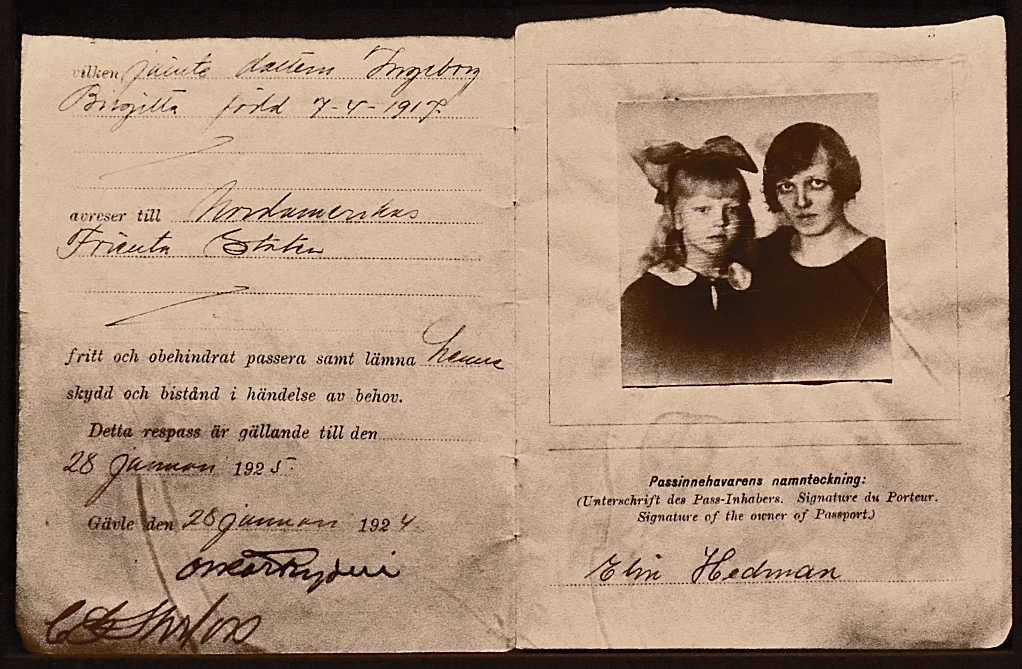 vilken jämte dottern Ingeborg
Birgitta född 7-4-1917.
avreser till Nordamerikas
Förenta Stater
fritt och obehindrat passera samt lämna henne
skydd och bistånd i händelse av behov.
Detta respass är gällande till den
28 januari 1925.
Gävle den 28 januari 1924.
3
Passinnehavarens namnteckning:
(Unterschrift des Pass-Inhabers. Signature du Porteur.
Signature of the owner of Passport.)
Elin Hedman